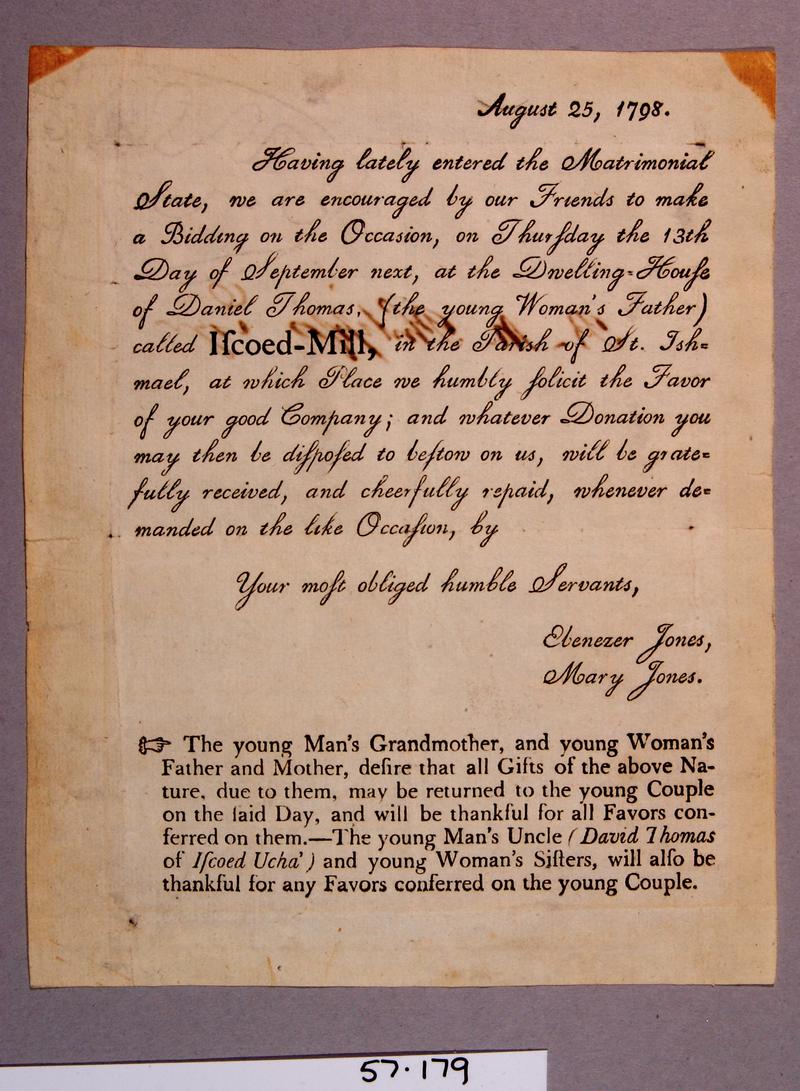 August 25, 1798.
Having lately entered the Matrimonial
State, we are encouraged by our Friends to make
a Bidding on the Occasion, on Thurſday the 13th
Day of September next, at the Dwelling-Houſe
of Daniel Thomas, (the young Woman's Father)
called Iſcoed-Mill, in the Pariſh of St. Iſh-
mael, at which Place we humbly ſolicit the Favor
of your good Company; and whatever Donation you
may then be diſpoſed to beſtow on us, will be grate-
fully received, and cheerfully repaid, whenever de-
manded on the like Occaſion, by
Your moſt obliged humble Servants,
Ebenezer Jones,
Mary Jones.
☞ The young Man's Grandmother, and young Woman's
Father and Mother, deſire that all Gifts of the above Na-
ture, due to them, may be returned to the young Couple
on the ſaid Day, and will be thankful for all Favors con-
ferred on them.—The young Man's Uncle (David Thomas
of Iſcoed Ucha') and young Woman's Siſters, will alſo be
thankful for any Favors conferred on the young Couple.
57.179